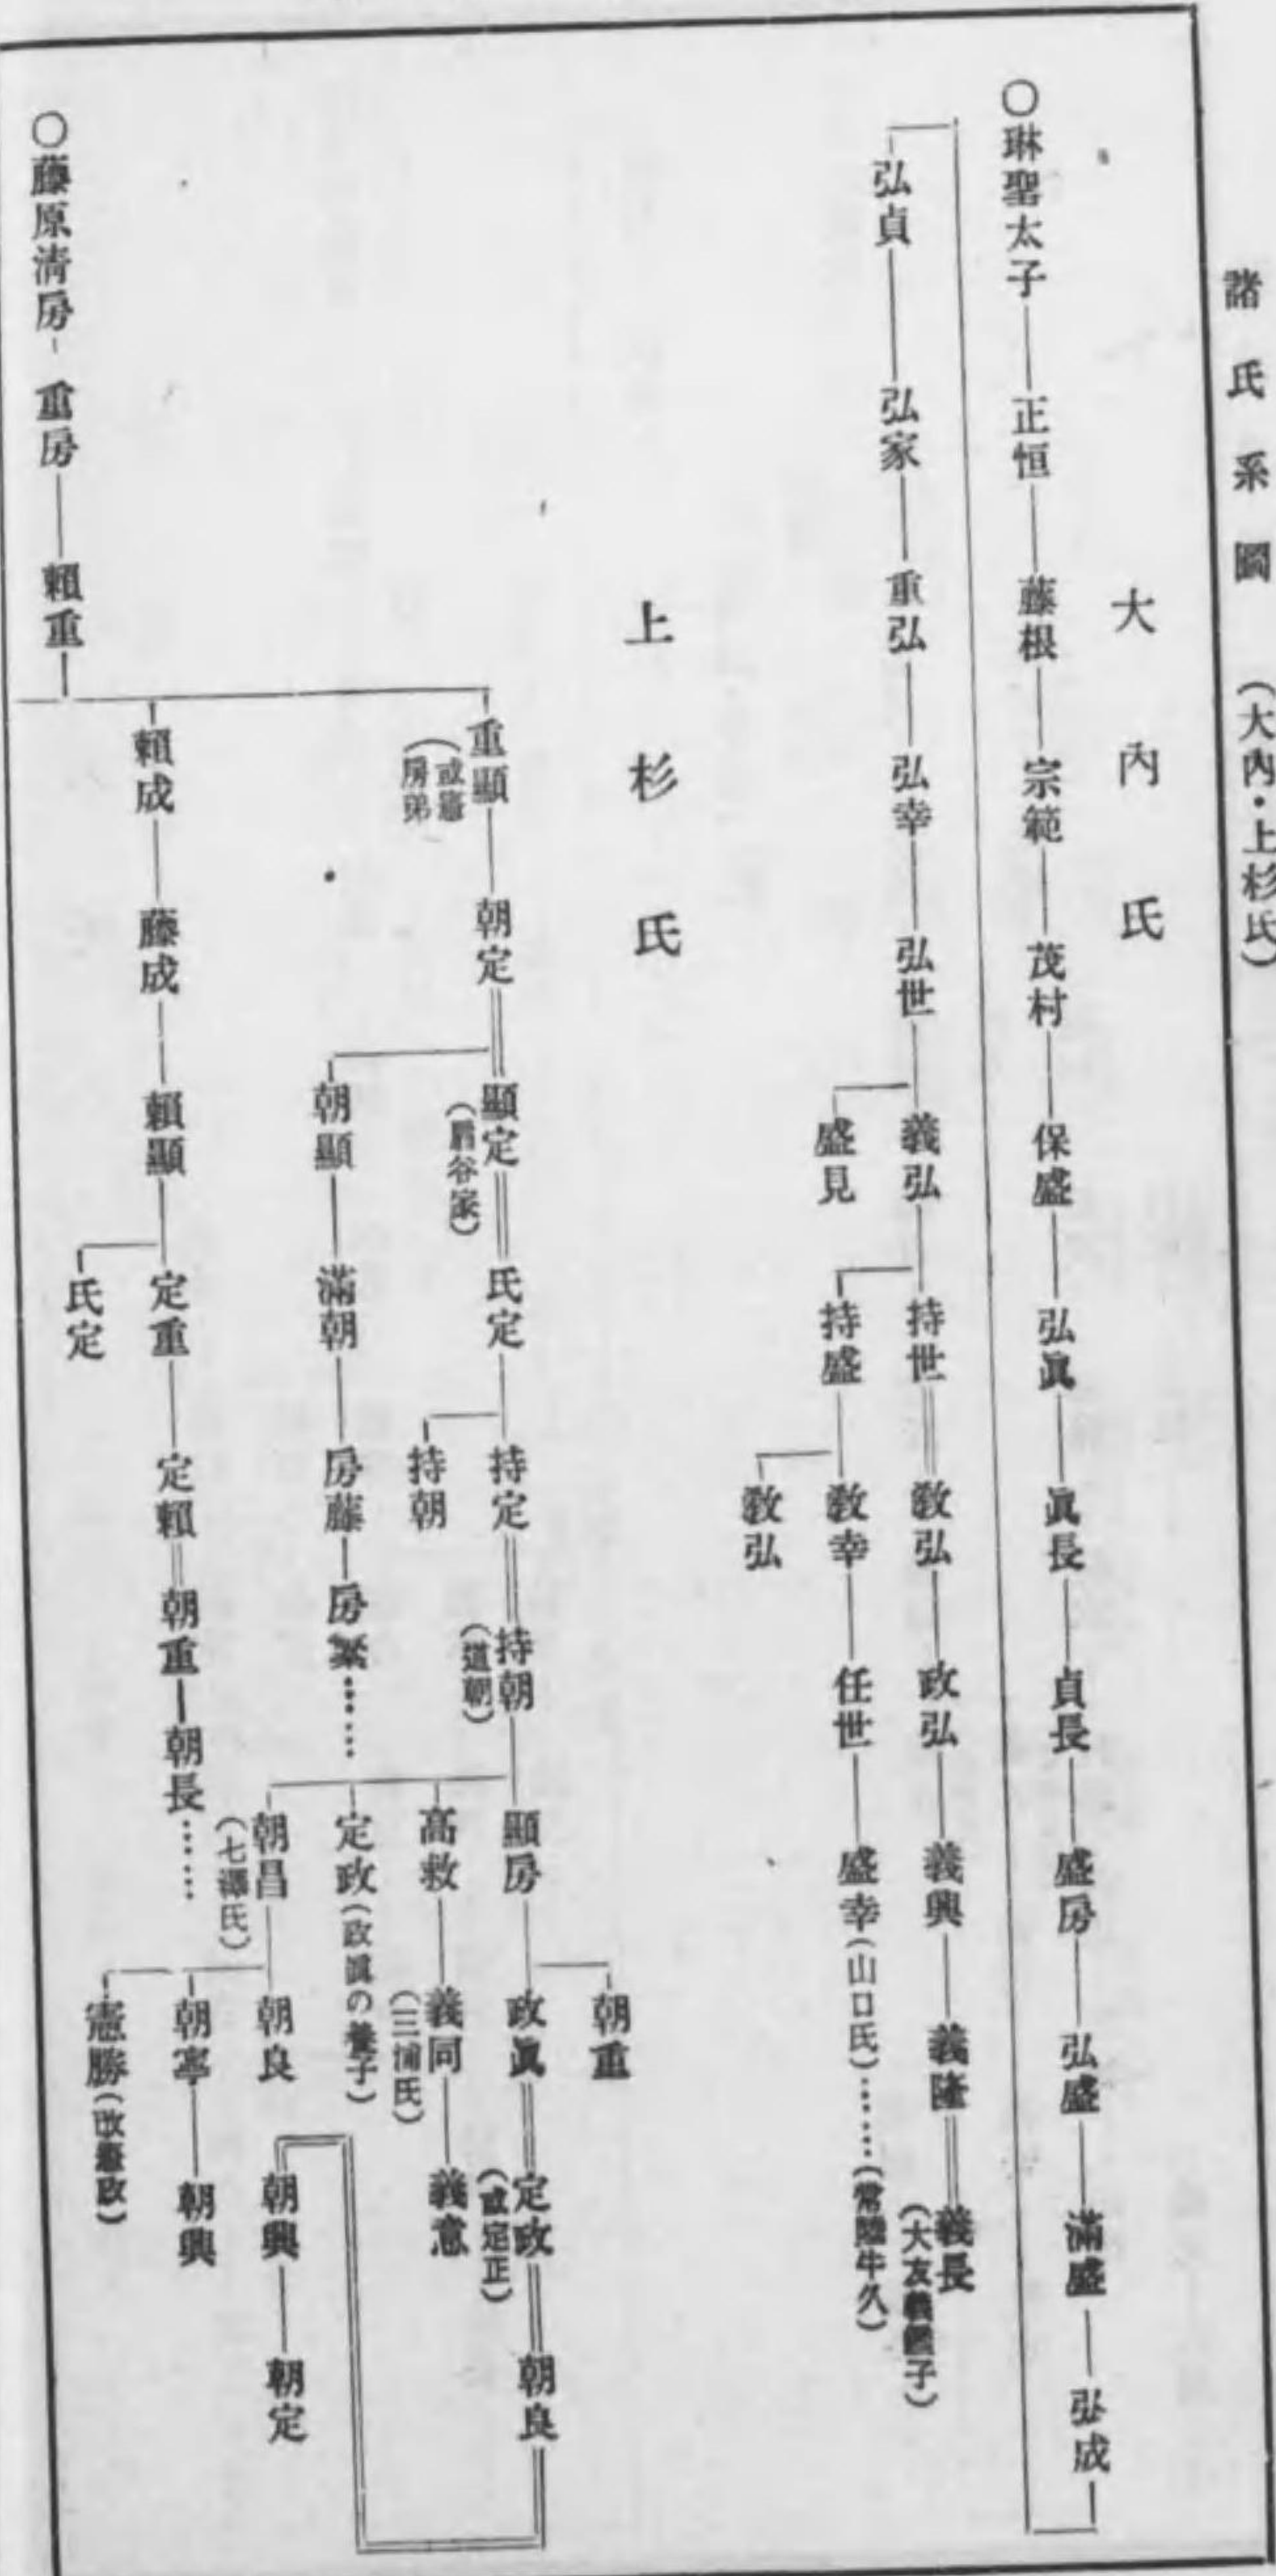 諸氏系圖 (大內・上杉氏)
大內氏
〇琳聖太子―正恒―藤根―宗範―茂村―保盛―弘眞―眞長―貞長―盛房―弘盛―滿盛―弘成
弘貞―弘家―重弘―弘幸―弘世
義弘―持世＝敎弘―政弘―義興―義隆＝義長
(大友義鑑子)
盛見
持盛―敎幸―任世―盛幸(山口氏)……(常陸牛久)
敎弘
上杉氏
〇藤原清房―重房―賴重
重顯―朝定＝顯定＝氏定―持定＝持朝
(或憲房弟)
(扇谷家)
(道朝)
持朝
顯房―政眞＝定政＝朝良
朝重
(或定正)
高救―義同―義意
(三浦氏)
定政(政眞の養子)
朝昌―朝良
(七澤氏)
朝寧―朝興
憲勝(改憲政)
朝興―朝定
朝顯―滿朝―房藤―房繁……
賴成―藤成―賴顯―定重―定賴＝朝重―朝長……
氏定